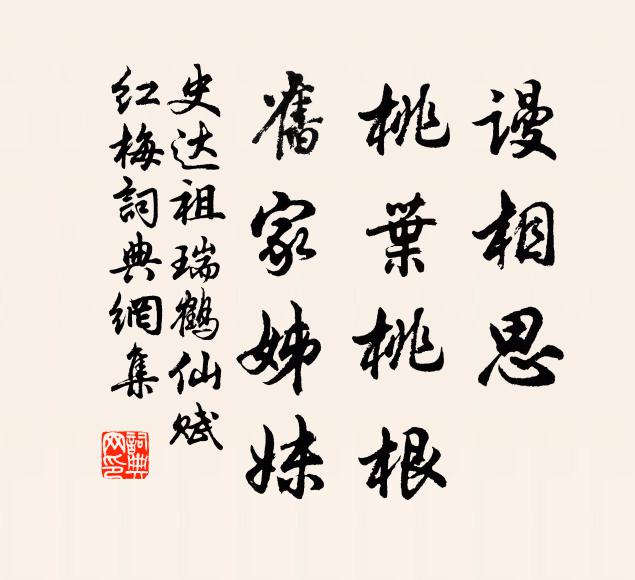 谩相思
桃葉桃根
舊家姊妹
史达祖瑞鶴仙赋
红梅詞典網集
詞典网印